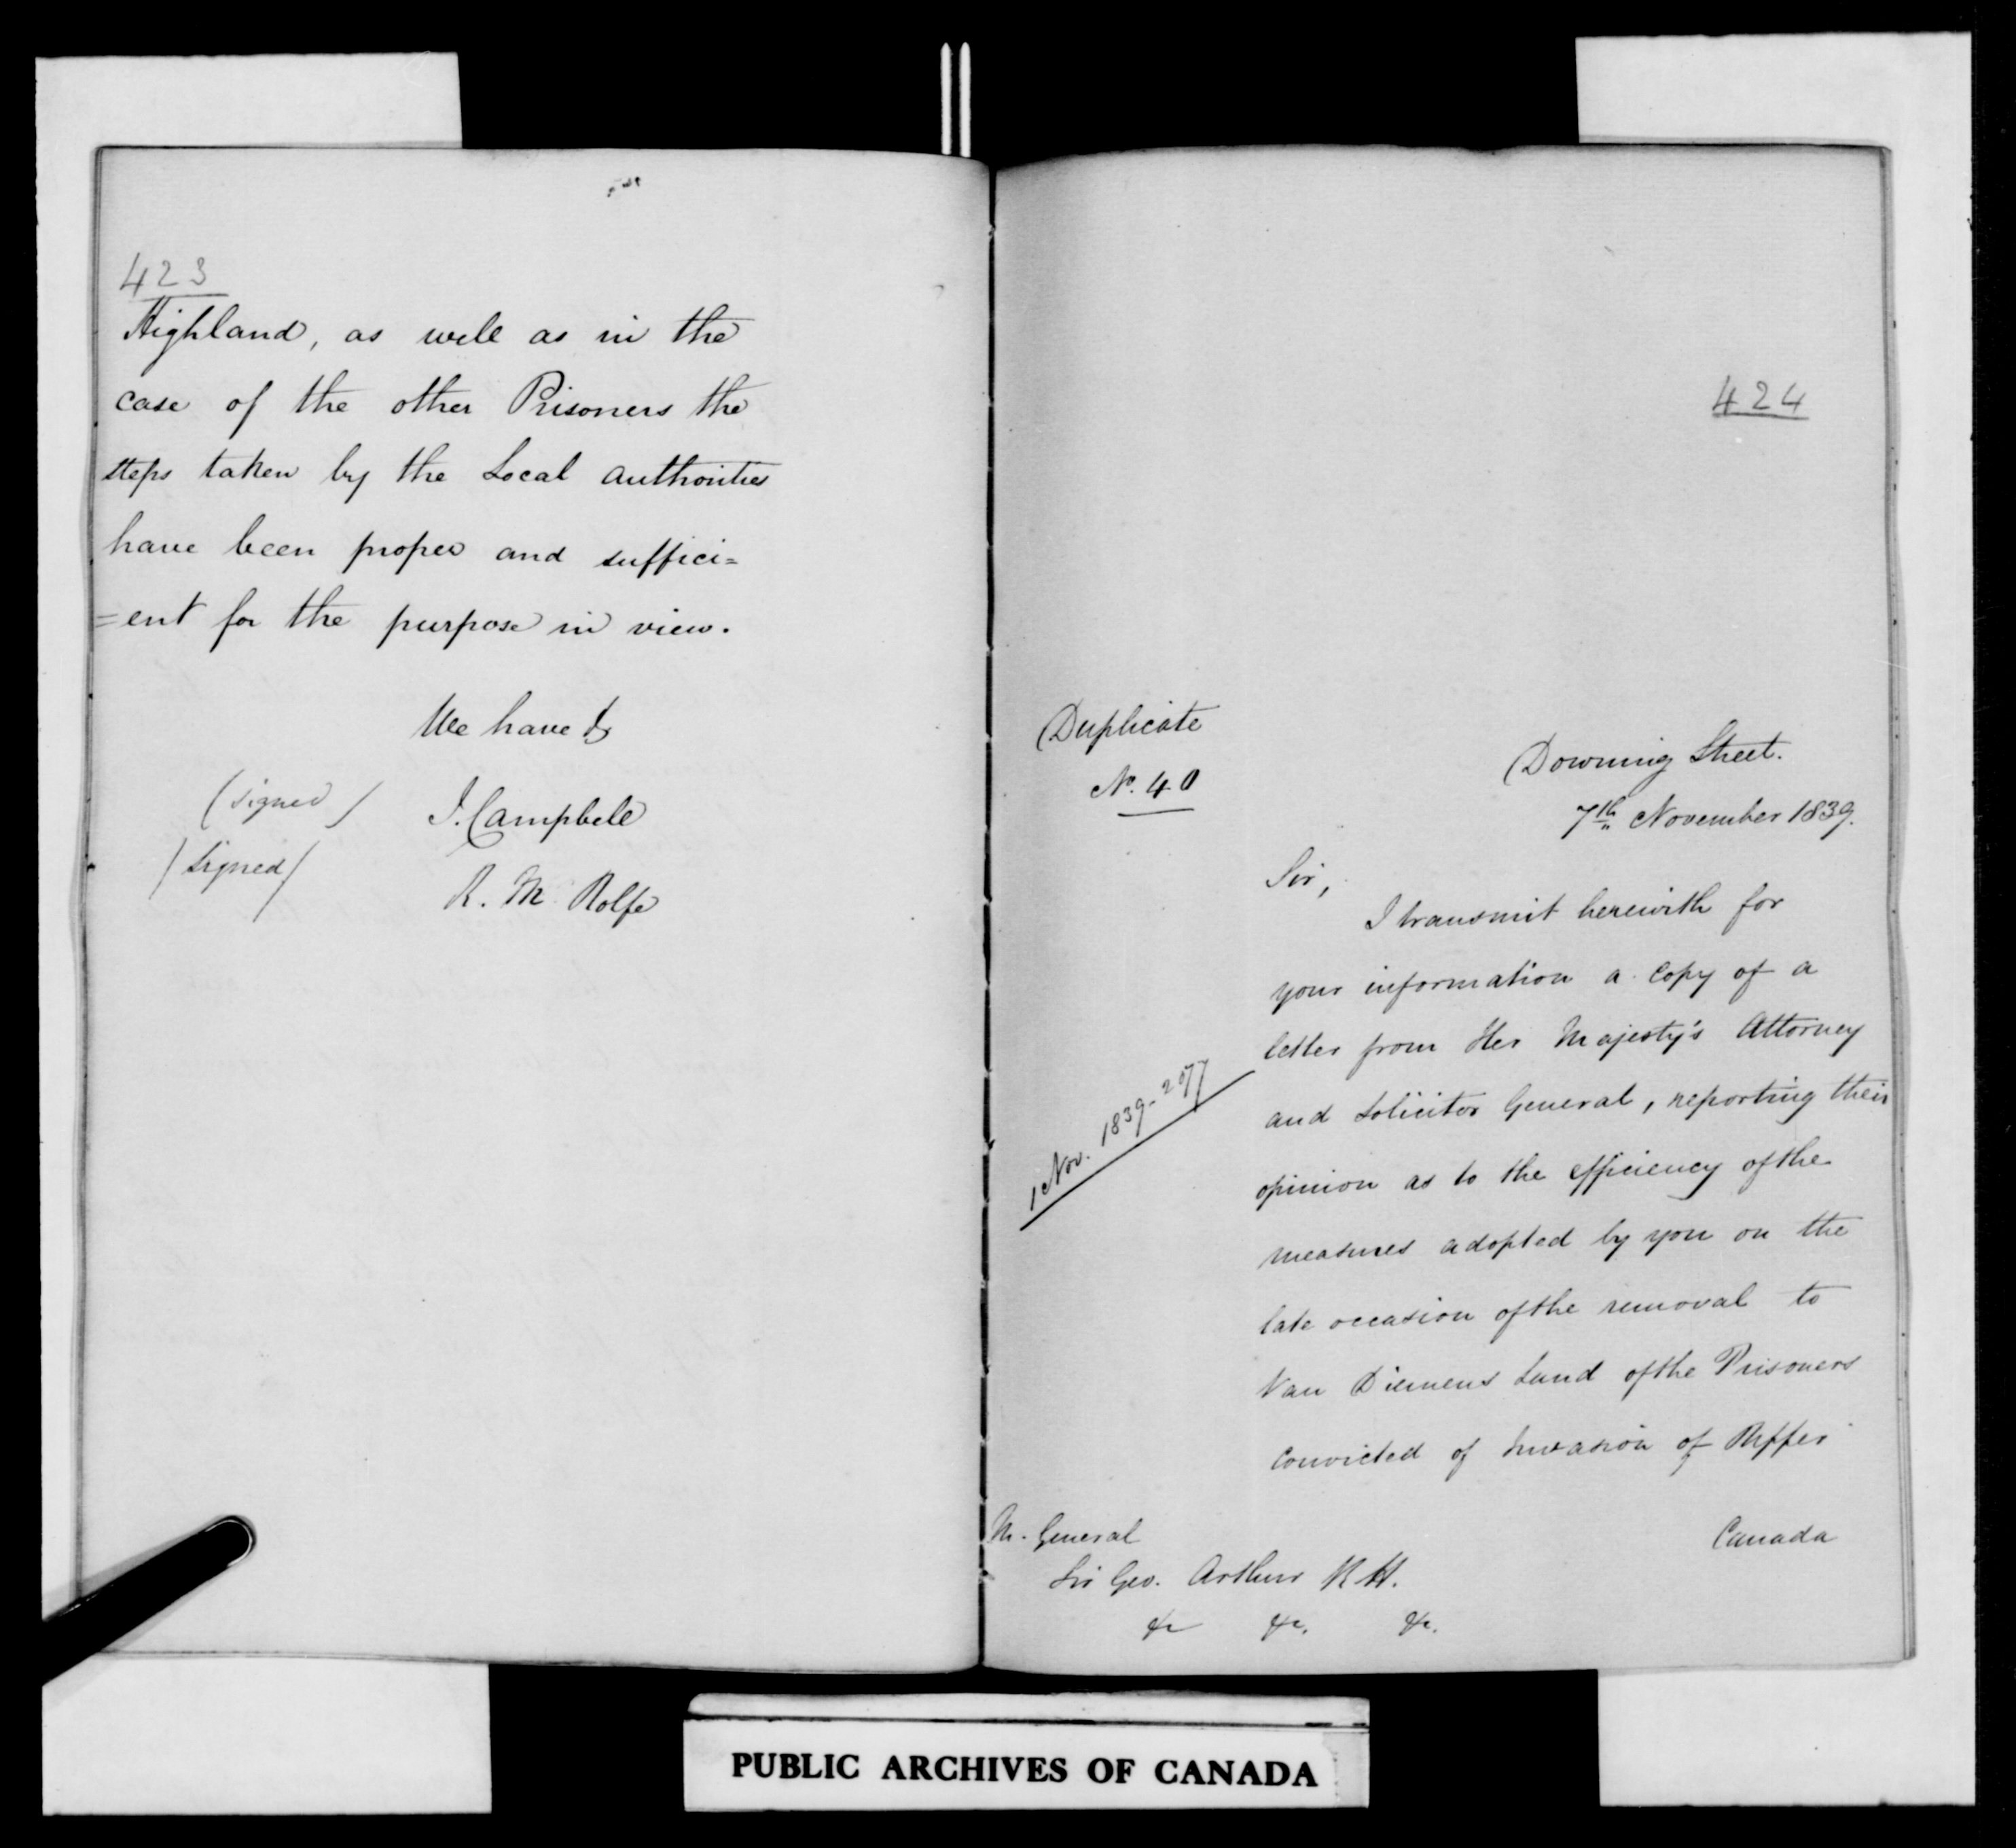 423
Highland, as well as in the
case of the other Prisoners the
steps taken by the Local authorities
have been proper and suffici=
=ent for the purpose in view.
We have &
(signed) J. Campbell
(signed) R. M. Rolfe
424
Duplicate
No. 40
Downing Street.
7th November 1839.
Sir,
I transmit herewith for
your information a copy of a
letter from Her Majesty's Attorney
and Solicitor General, reporting their
1 Nov. 1839-
opinion as to the efficiency of the
measures adopted by you on the
late occasion of the removal to
Van Diemens Land of the Prisoners
convicted of Invasion of Upper
Canada
M. General
Sir Geo. Arthur K H.
&c &c. &c.
PUBLIC ARCHIVES OF CANADA